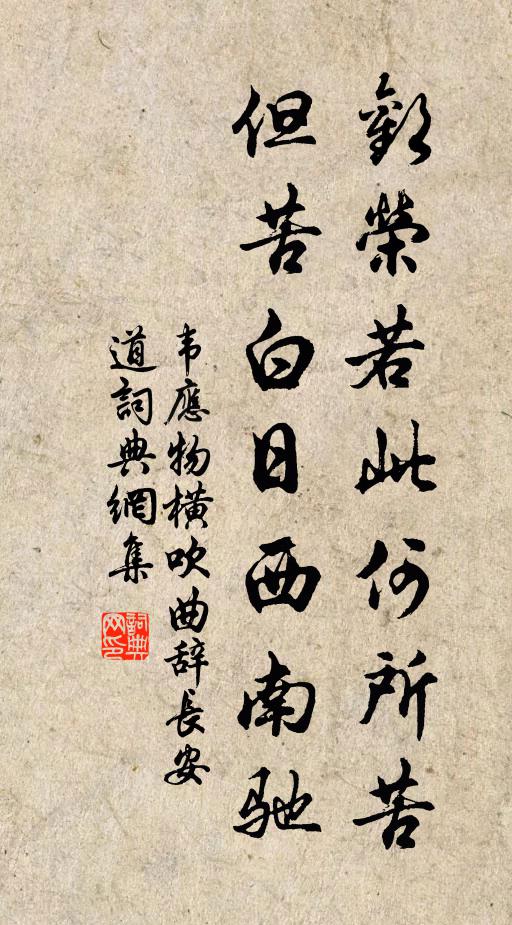 歡榮若此何所苦
但苦白日西南馳
韦應物橫吹曲辞長安
道詞典網集
詞典
网印